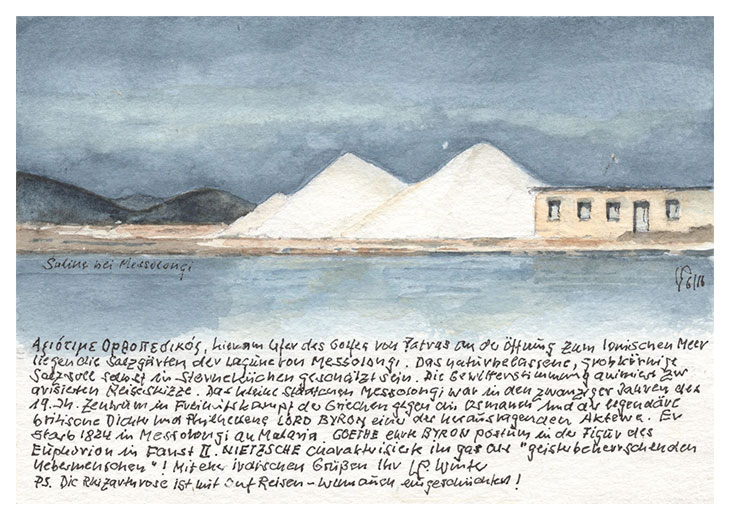 Saline bei Messolongi
6/16
Αξιότιμε Ορθοπεδικός, hier am Ufer des Golfes von Patras an der Öffnung zum Ionischen Meer
liegen die Salzgärten der Lagune von Messolongi. Das naturbelassene, grobkörnige
Salz soll selbst in Sterneküchen geschätzt sein. Die Gewitterstimmung animiert zur
Reiseskizze. Das kleine Städtchen Messolongi war in den zwanziger Jahren des
19. Jh. Zentrum im Freiheitskampf der Griechen gegen die Osmanen und der legendäre
britische Dichter und Philhellene LORD BYRON einer der herausragenden Akteure. Er
starb 1824 in Messolongi an Malaria. GOETHE ehrte BYRON postum in der Figur des
Euphorion in Faust II. NIETZSCHE charakterisierte ihn gar als "geisterbeherrschenden
Uebermenschen"! Mit Grüßen Ihr Winter
PS. Die Rhizarthrose ist mit auf Reisen - wenn auch eingeschüchtert!